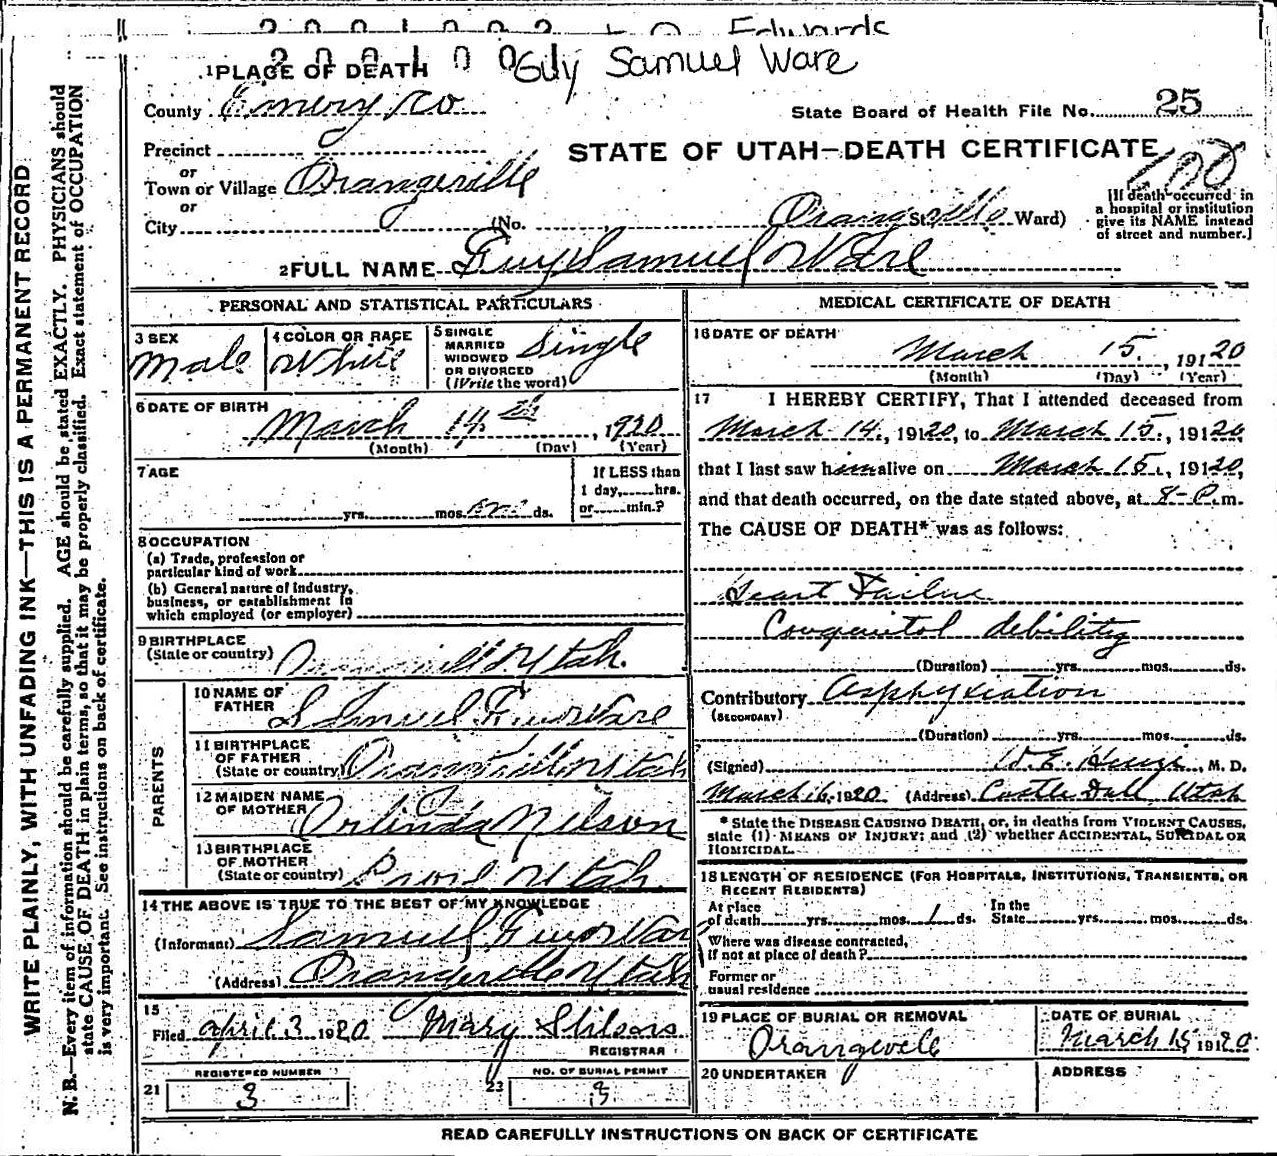 Edwards
Guy Samuel Ware
1 PLACE OF DEATH
County Emery Co
State Board of Health File No. 25
Precinct
or
Town or Village Orangeville
or
City
STATE OF UTAH—DEATH CERTIFICATE
(No. Orangeville St. Ward)
[If death occurred in
a hospital or institution
give its NAME instead
of street and number.]
2 FULL NAME Guy Samuel Ware
PERSONAL AND STATISTICAL PARTICULARS
3 SEX
Male
4 COLOR OR RACE
White
5 SINGLE
MARRIED
WIDOWED
OR DIVORCED
(Write the word)
Single
6 DATE OF BIRTH
March 14th, 1920
(Month) (Day) (Year)
7 AGE
yrs. mos. ds.
If LESS than
1 day, hrs.
or min.?
8 OCCUPATION
(a) Trade, profession or
particular kind of work
(b) General nature of industry,
business, or establishment in
which employed (or employer)
9 BIRTHPLACE
(State or country)
Orangeville Utah.
PARENTS
10 NAME OF
FATHER
Samuel Guy Ware
11 BIRTHPLACE
OF FATHER
(State or country)
Orangeville Utah
12 MAIDEN NAME
OF MOTHER
Orlinda Nilson
13 BIRTHPLACE
OF MOTHER
(State or country)
Provo Utah.
14 THE ABOVE IS TRUE TO THE BEST OF MY KNOWLEDGE
(Informant) Samuel Guy Ware
(Address) Orangeville Utah
15
Filed April 3 1920 Mary Stilson
REGISTRAR
REGISTERED NUMBER
21 3
NO. OF BURIAL PERMIT
23 3
MEDICAL CERTIFICATE OF DEATH
16 DATE OF DEATH
March 15, 19120
(Month) (Day) (Year)
17 I HEREBY CERTIFY, That I attended deceased from
March 14, 19120, to March 15, 19120,
that I last saw him alive on March 15, 19120,
and that death occurred, on the date stated above, at 8-P.m.
The CAUSE OF DEATH* was as follows:
Heart Failure
Congenital debility
(Duration) yrs. mos. ds.
Contributory Asphyxiation
(SECONDARY)
(Duration) yrs. mos. ds.
(Signed) W.E., M. D.
March 16, 1920 (Address) Castle Dale, Utah
* State the DISEASE CAUSING DEATH, or, in deaths from VIOLENT CAUSES,
state (1) MEANS OF INJURY; and (2) whether ACCIDENTAL, SUICIDAL OR
HOMICIDAL.
18 LENGTH OF RESIDENCE (FOR HOSPITALS, INSTITUTIONS, TRANSIENTS, OR
RECENT RESIDENTS)
At place
of death yrs. mos. 1 ds.
In the
State yrs. mos. ds.
Where was disease contracted,
if not at place of death?
Former or
usual residence
19 PLACE OF BURIAL OR REMOVAL
Orangevele
DATE OF BURIAL
March 15 19120
20 UNDERTAKER
ADDRESS
READ CAREFULLY INSTRUCTIONS ON BACK OF CERTIFICATE
WRITE PLAINLY, WITH UNFADING INK—THIS IS A PERMANENT RECORD
N. B.—Every item of information should be carefully supplied. AGE should be stated EXACTLY. PHYSICIANS should
state CAUSE OF DEATH in plain terms, so that it may be properly classified. Exact statement of OCCUPATION
is very important. See instructions on back of certificate.